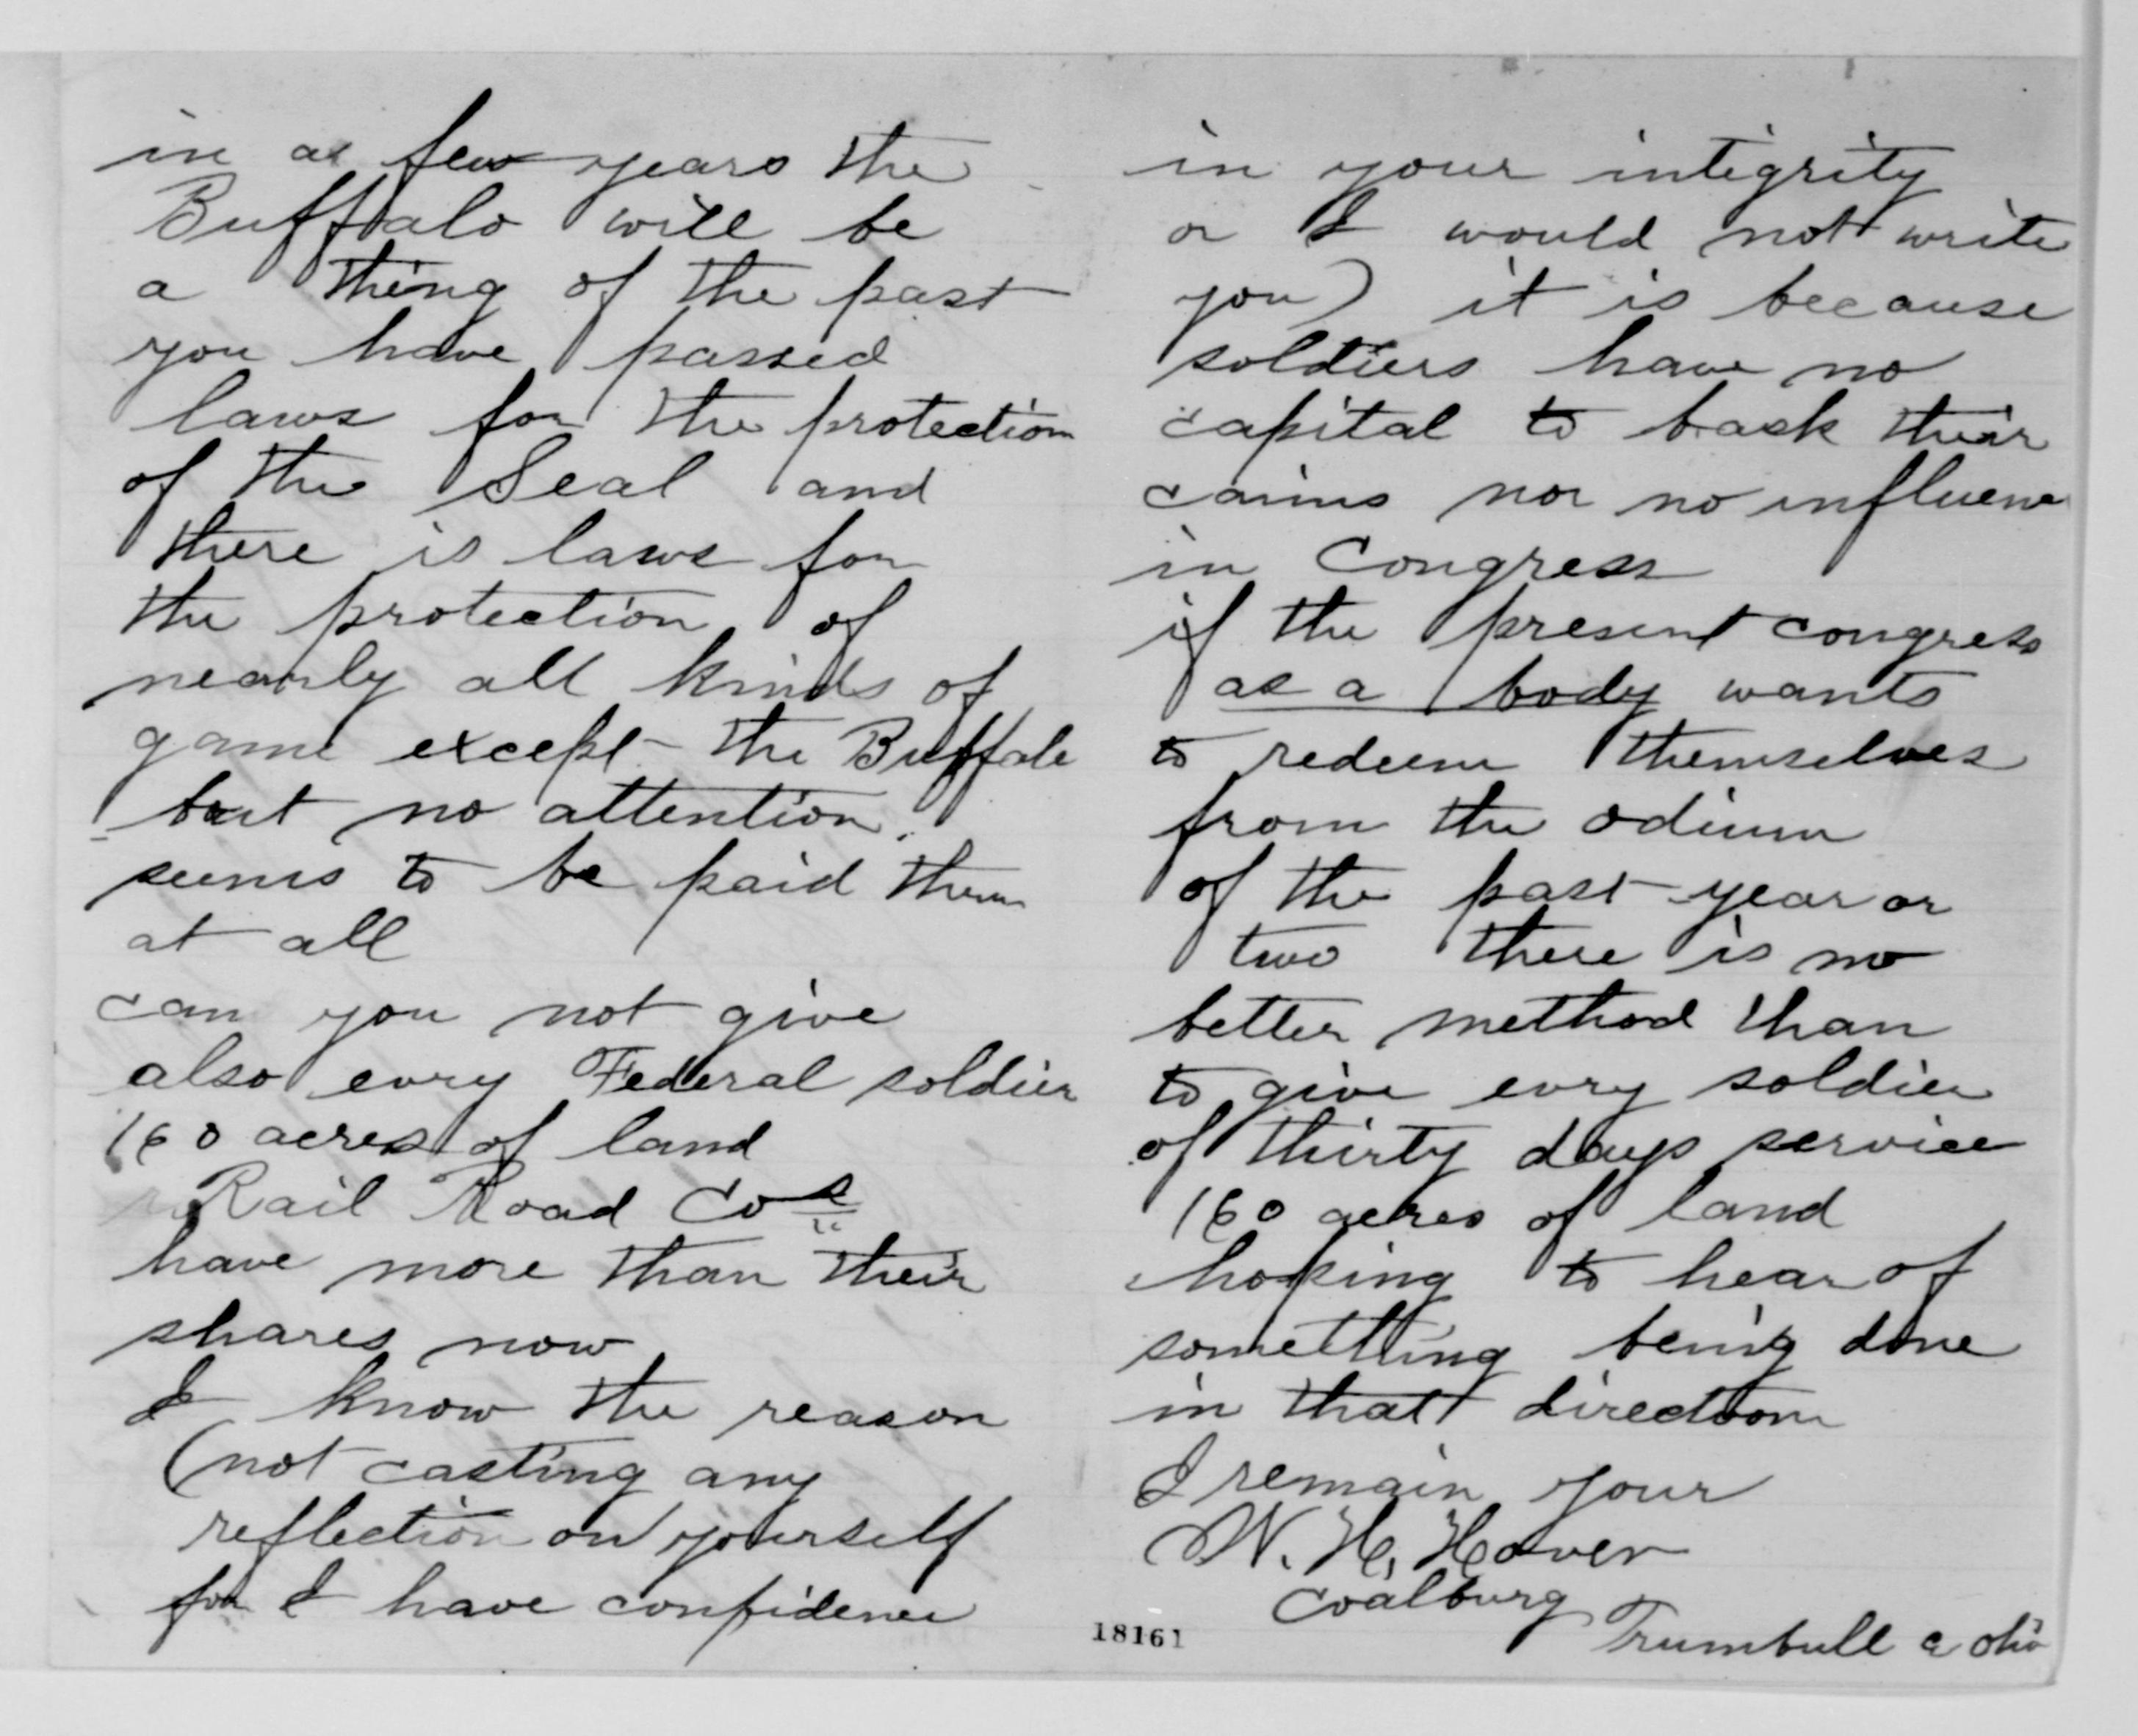 in a few years the
Buffalo will be
a thing of the past
you have passed
laws for the protection
of the Seal and
there is laws for
the protection of
nearly all kinds of
game except the Buffalo
but no attention
seems to be paid them
at all
can you not give
also evry Federal soldier
160 acres of land
Rail Road Cos
have more than their
shares now
I know the reason
(not casting any
reflection on yourself
for I have confidence
in your intigrity
or I would not write
you) it is because
soldiers have no
capital to back their
caims nor no influence
in Congress
if the present congress
as a body wants
to redeem themselves
from the odium
of the past year or
two there is no
better method than
to give evry soldier
of thirty days service
160 acres of land
hoping to hear of
something being done
in that direction
I remain your
W. H. Hoover
Coalburg
Trumbull C Ohio
18161